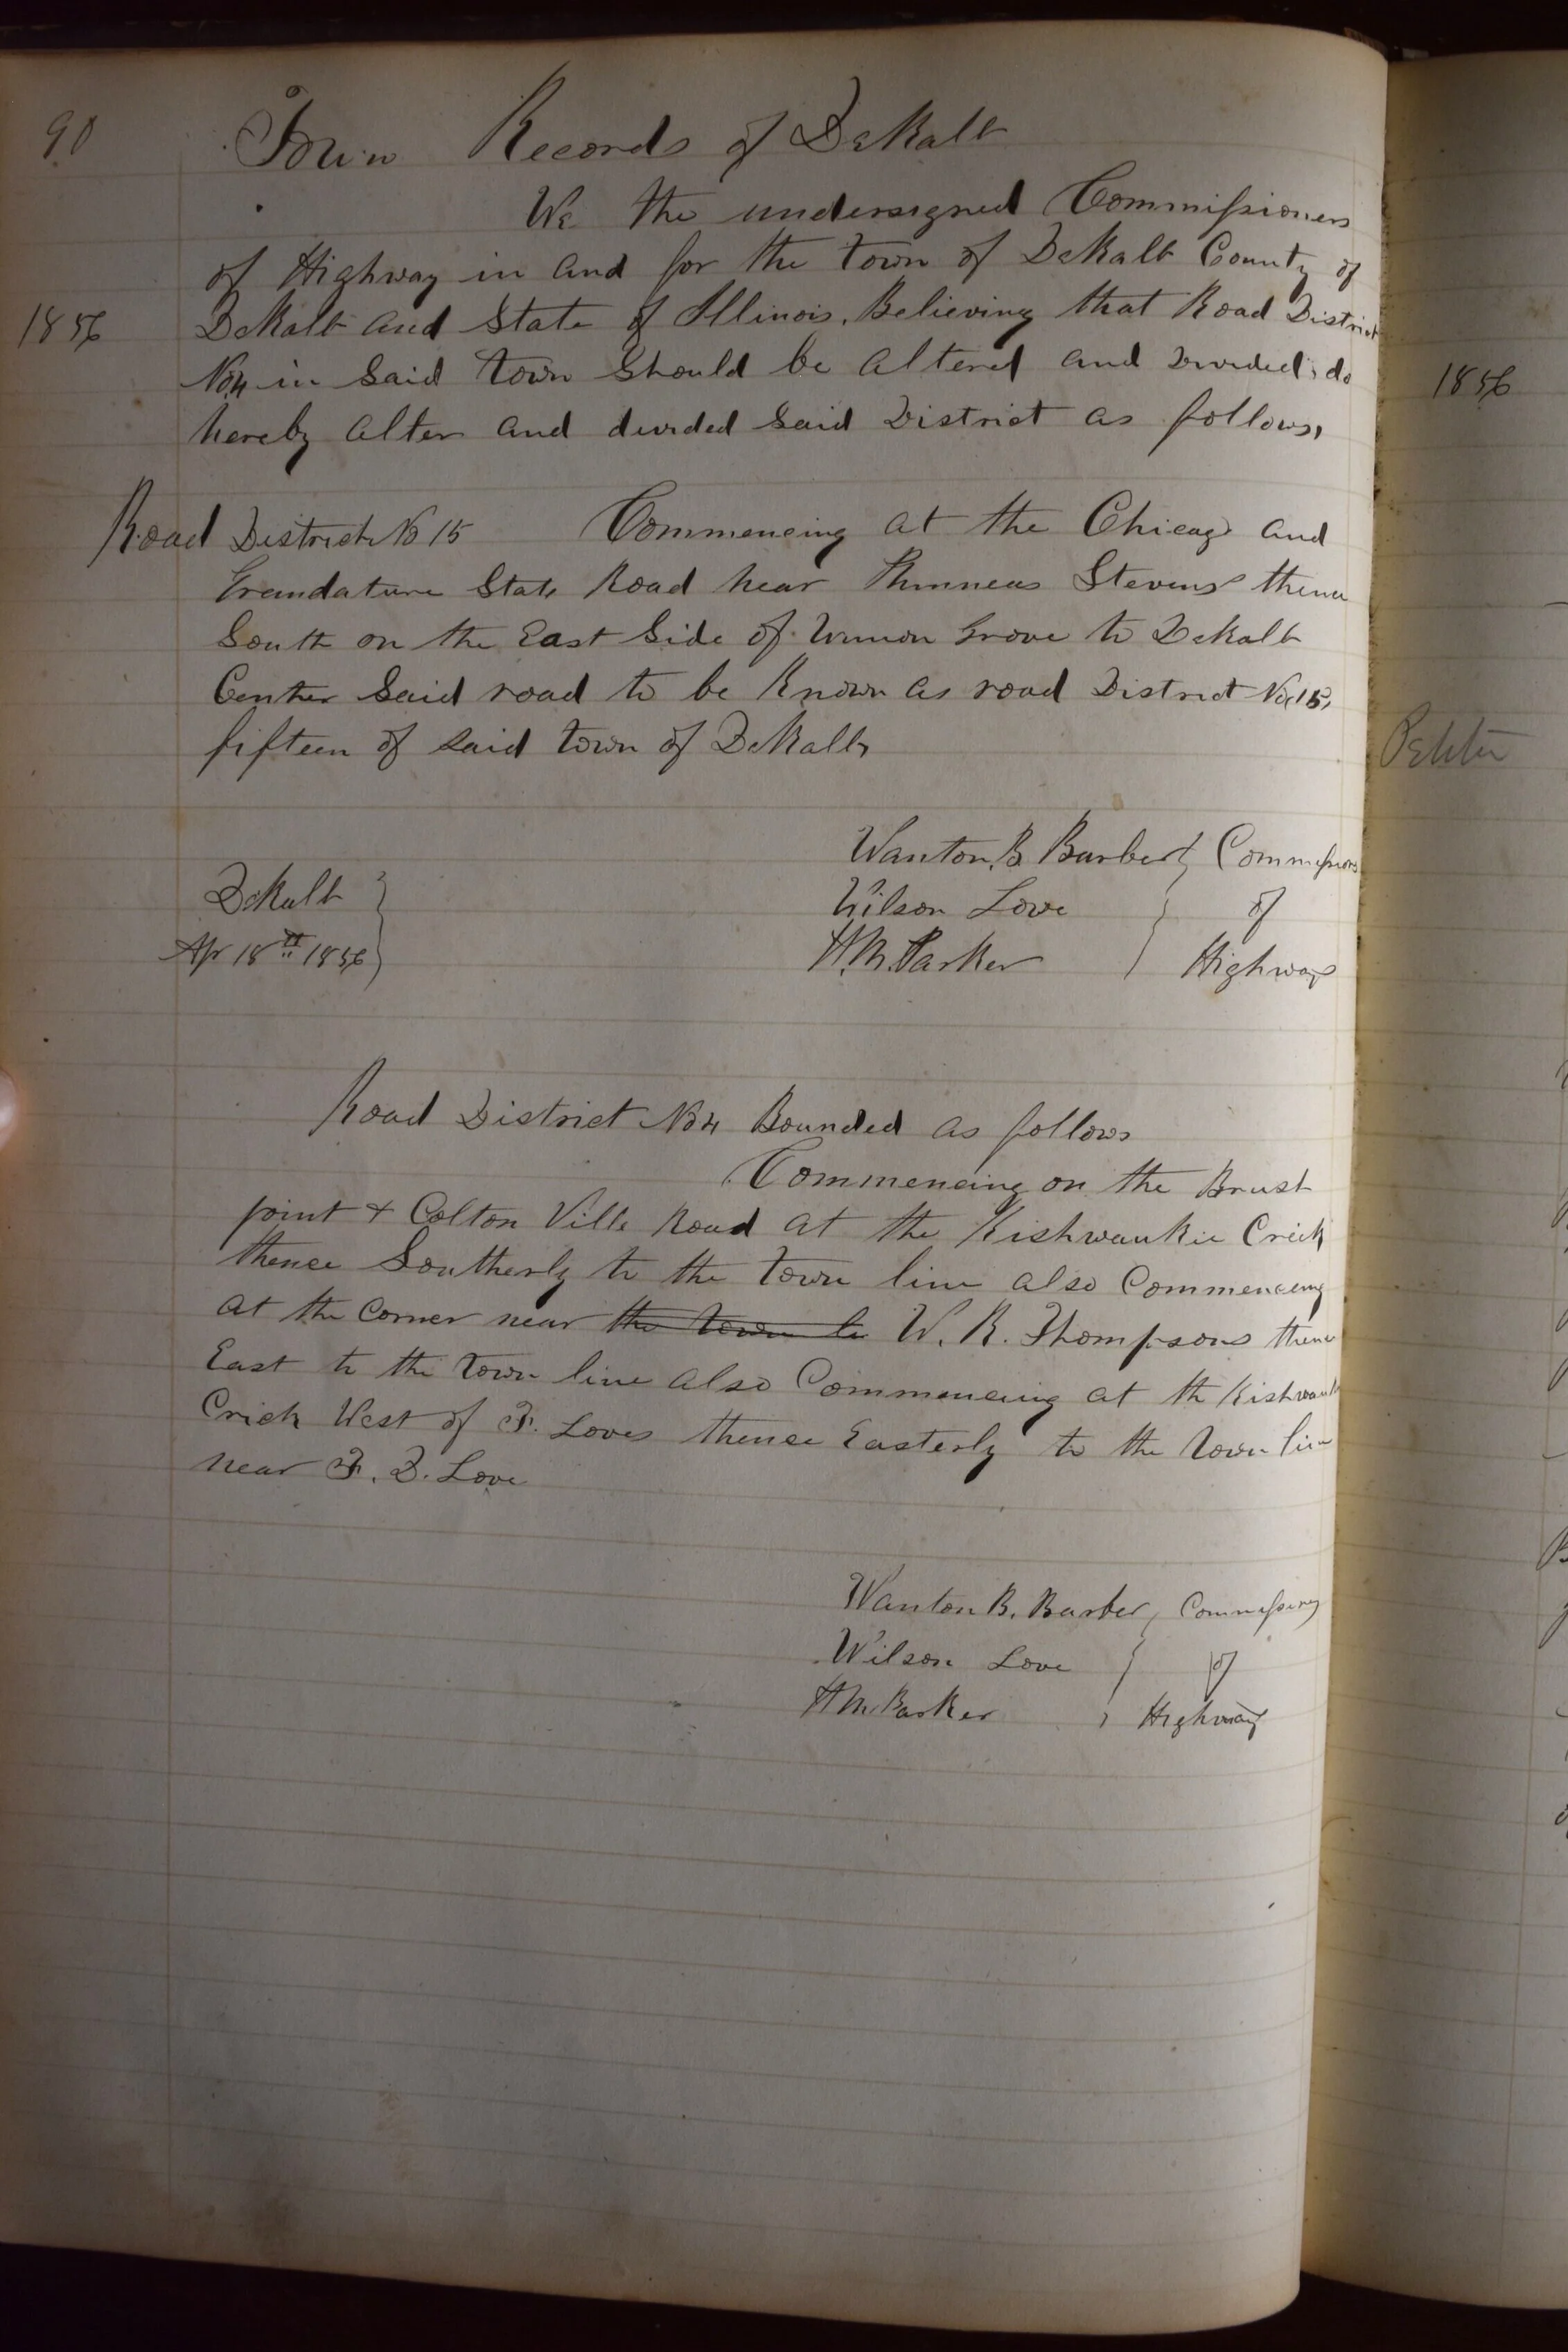 90
Town Records of DeKalb
We the undersigned Commissioners
of Highway in and for the town of DeKalb County of
1856
DeKalb and State of Illinois, Believing that Road District
No 4 in Said town Should be altered and devided, do
hereby alter and devided Said District as follows,
Road District No 15 Commencing at the Chicago and
State Road near Phinneas Stevens thence
South on the East Side of Union Grove to DeKalb
Center Said road to be Known as road District No, 15,
fifteen of said town of DeKalb,
Wanton, B Barber Commissioners
DeKalb
Wilson Love of
Apr 18th 1856
H. M. Parker Highways
Road District No 4 Bounded as follows
Commencing on the Brust
point + Colton Ville Road at the Kishwaukie Crick
thence Southerly to the town line also Commencing
at the Corner near the town li W. R. Thompsons thence
East to the town line also Commencing at th Kishwauk
Crick West of F. Loves thence Easterly to the town line
near F. D. Love
Wanton B. Barber, Commissioners
Wilson Love of
H M. Parker Highway
1856